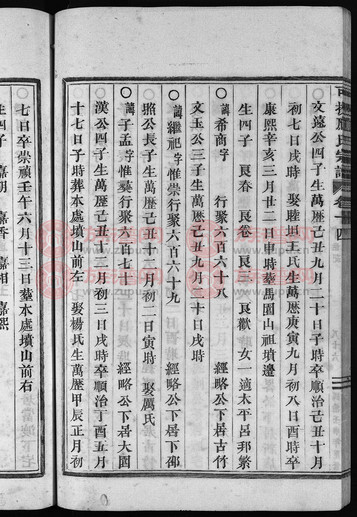 文遠公四子生萬歷己丑九月二十日子時卒順治己丑十月
初七日戌時 娶睦坦王氏生萬歷庚寅九月初八日酉時卒
康熙辛亥三月廿二日申時葬馬園山祖墳邊
生四子 良春 良卷 良三 良歡 女一適太平呂邦繁
○諱希商字 行聚六百六十八 經略公下居古竹
文玉公三子生萬歷己丑九月二十日戌時
○諱繼祀字惟崇行聚六百六十九 經略公下居下𨛦
照公長子生萬歷己丑十二月初二日寅時 娶厲氏
○諱子孟字惟藝行聚六百七十 經略公下居大園
漢公四子生萬歷己丑十三月初三日戌時卒順治丁酉五月
十七日子時葬水處墳山前左 娶楊氏生萬歷甲辰正月初
七日卒崇禎壬午六月十三日葬水處墳山前右
生四子 嘉朝 嘉香 嘉相 嘉熙